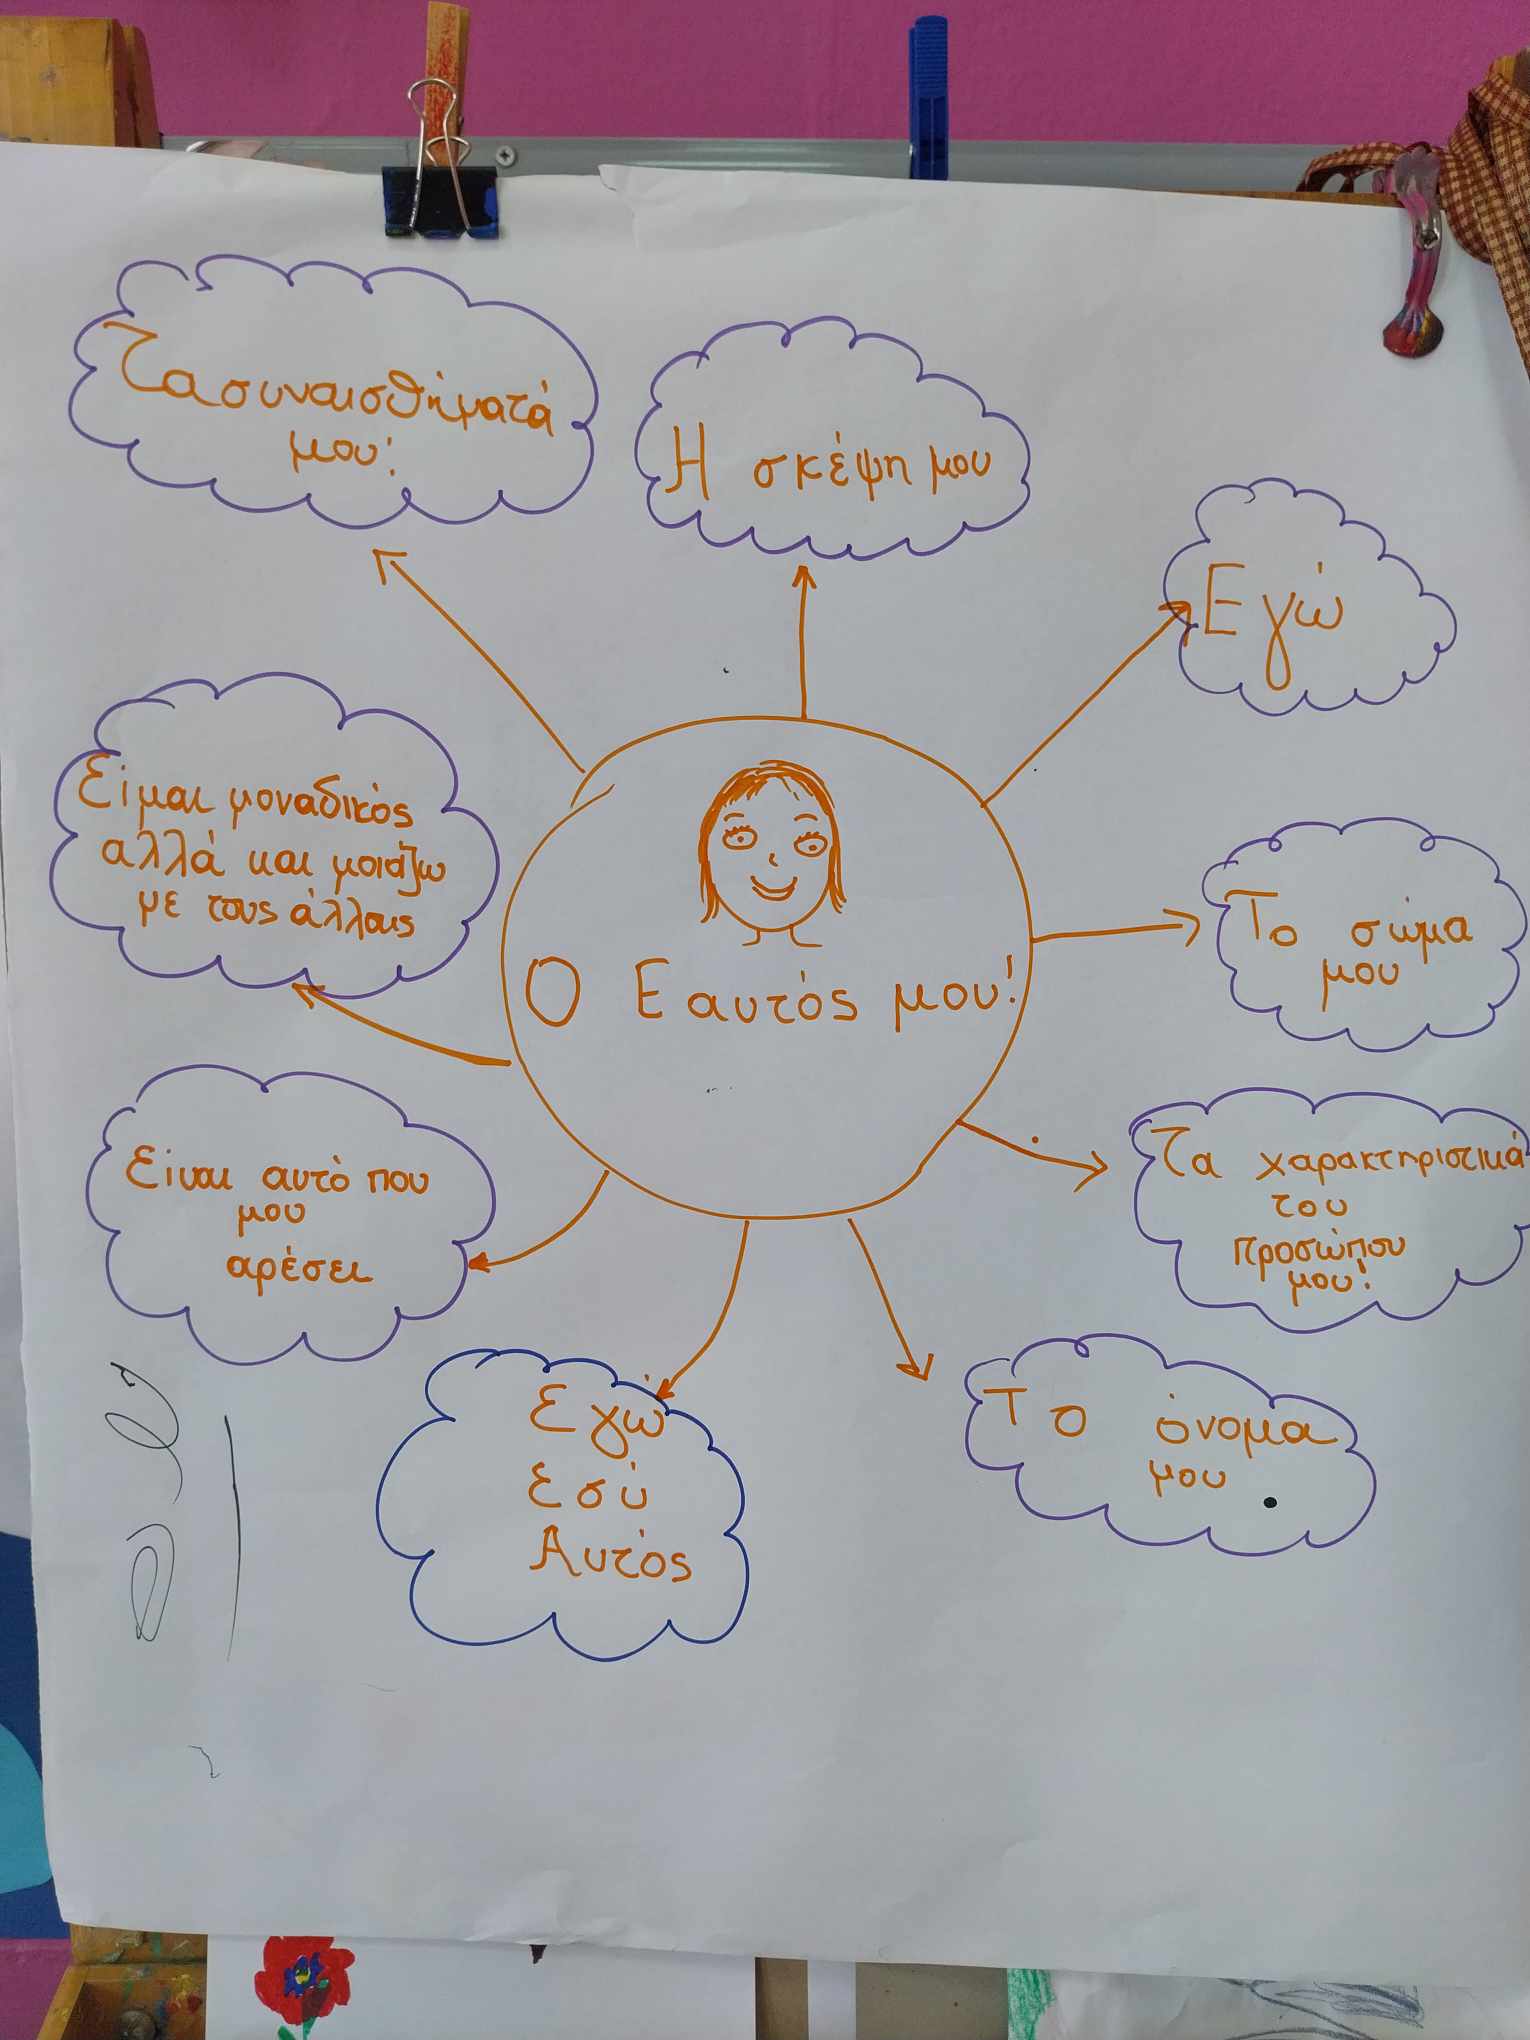 Τα συναισθήματά
μου!
Η σκέψη μου
Εγώ
Είμαι μοναδικός
αλλά και μοιάζω
με τους άλλους
Ο Εαυτός μου!
Το σώμα
μου
Είναι αυτό που
μου
αρέσει
Τα χαρακτηριστικά
του
προσώπου
μου!
Εγώ
Εσύ
Αυτός
Το όνομα
μου